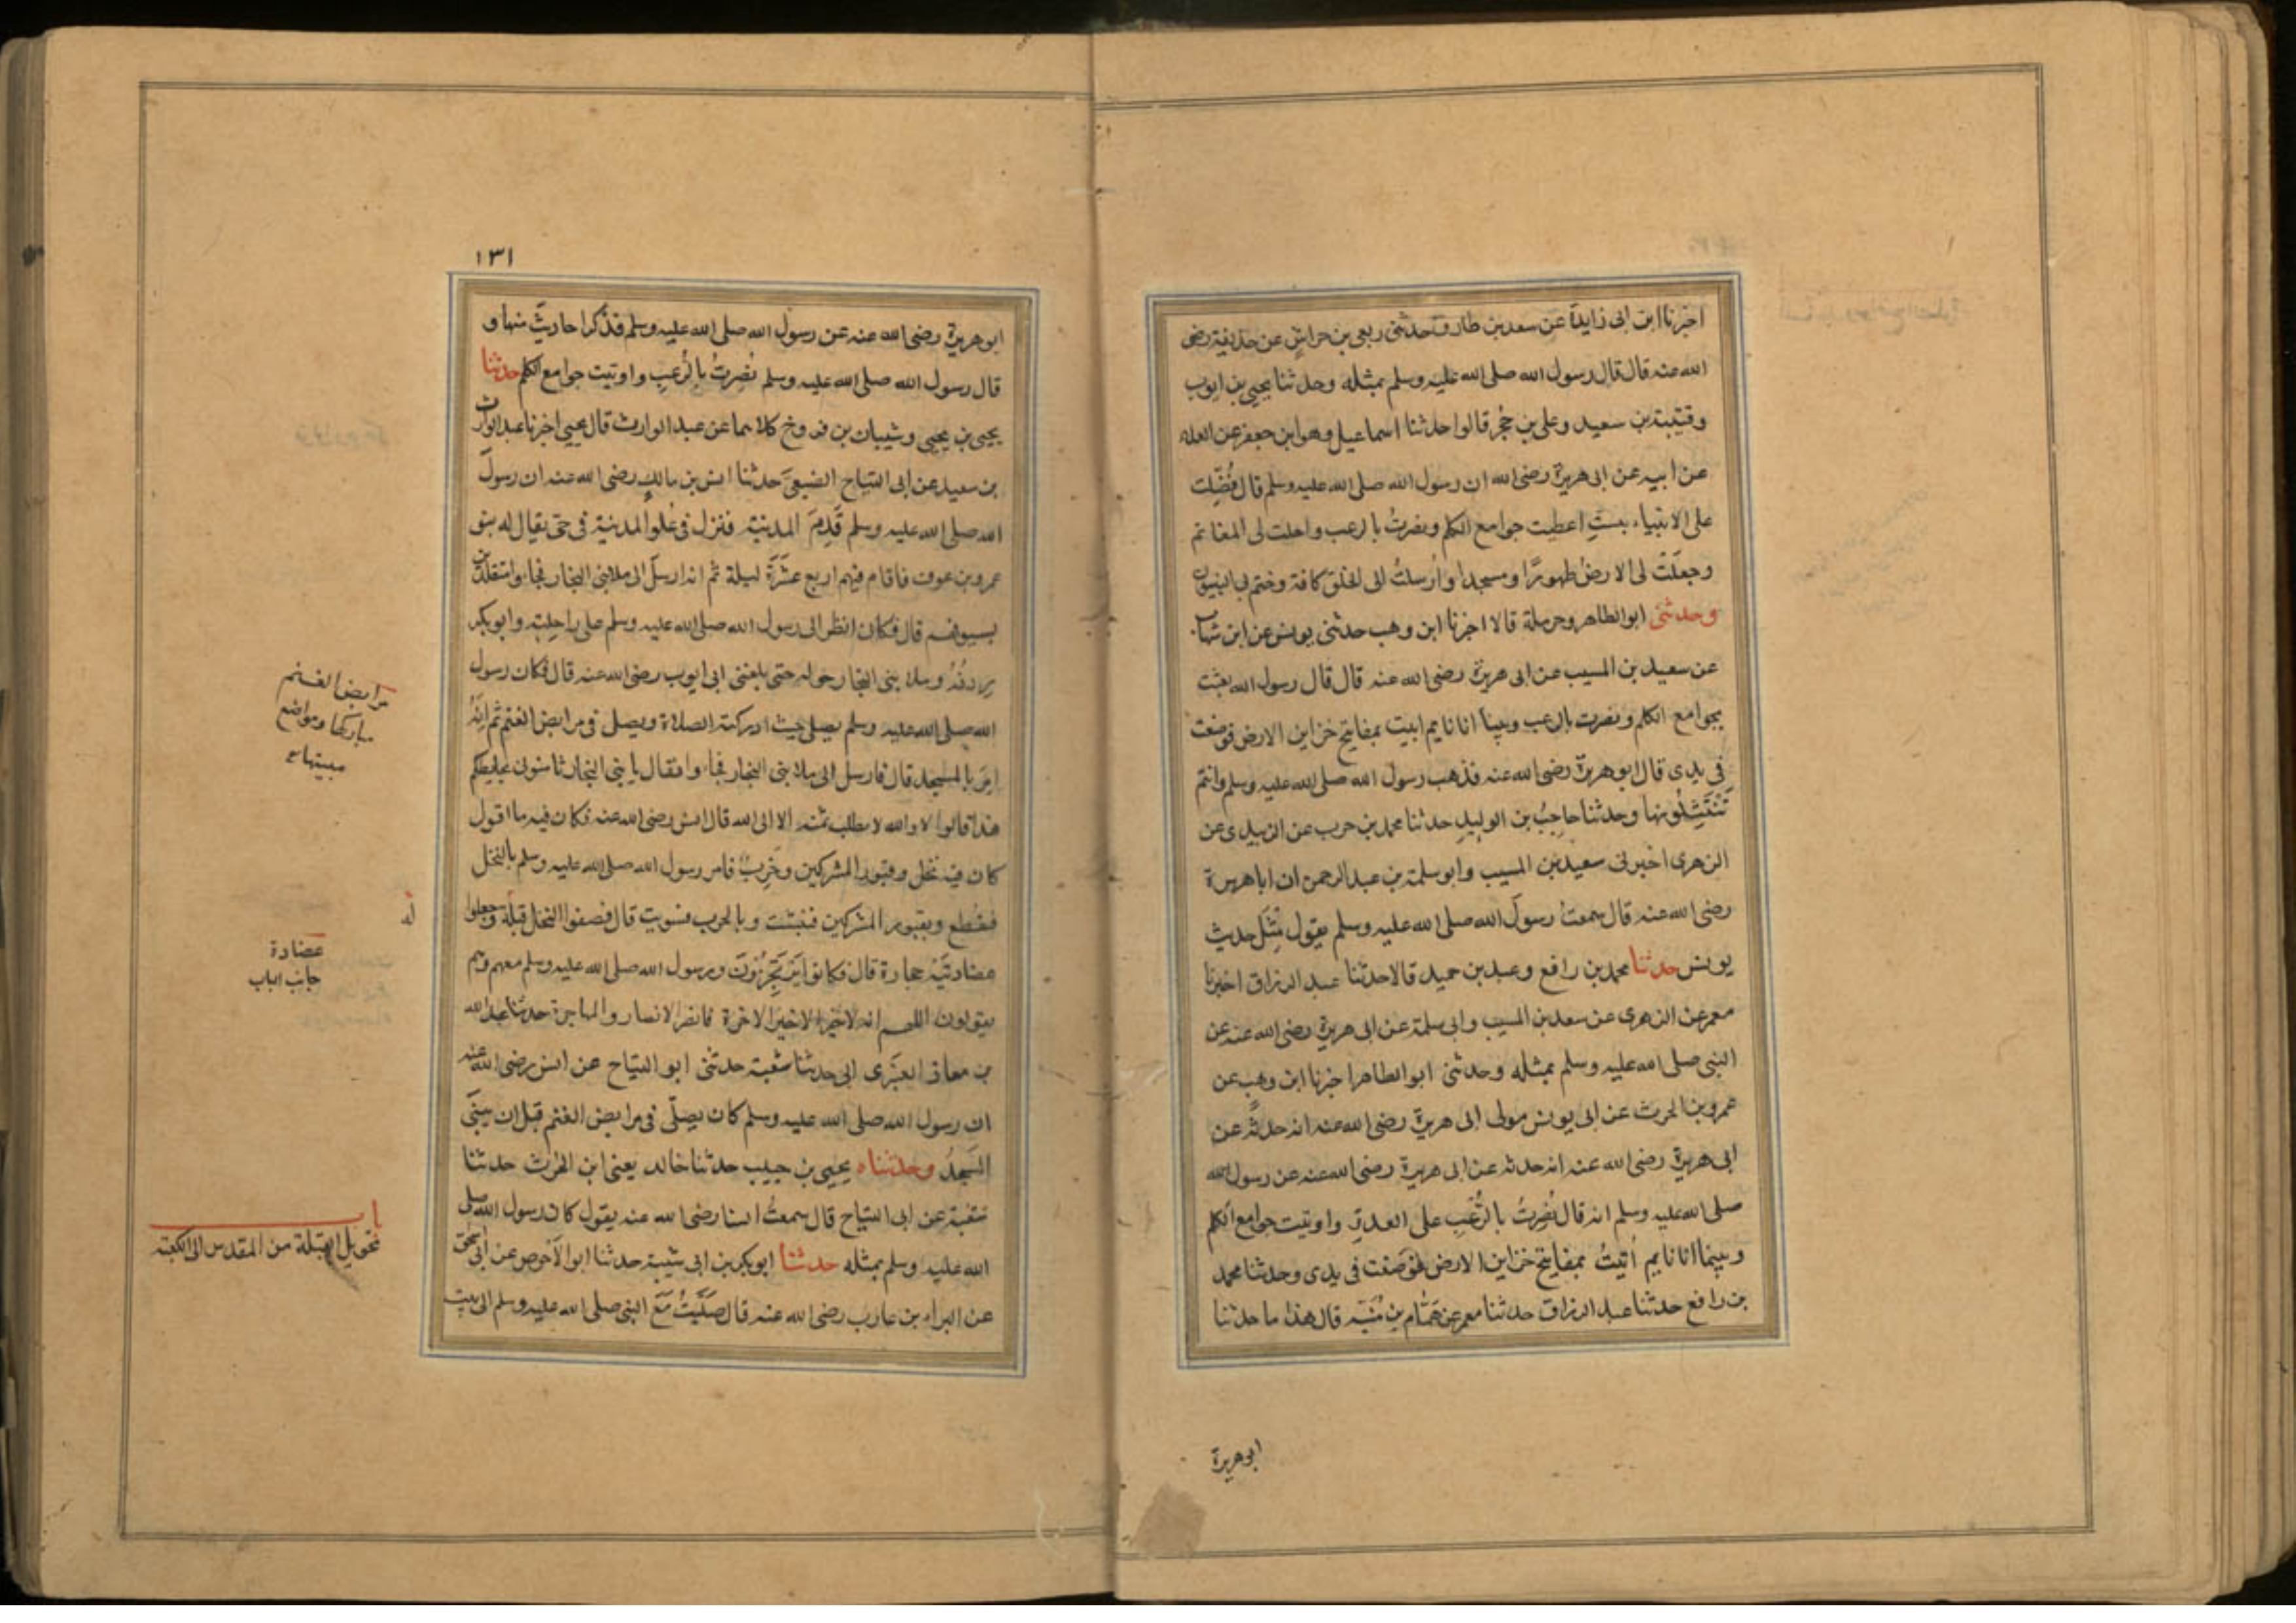 اخبرنا ابن ابى زايدة عن سعد بن طارق حدثنى ربعى بن حراش عن حذيفة رضى
الله عنه قال قال رسول الله صلى الله عليه وسلم بمثله وحدثنا يحيى بن ايوب
وقتيبة بن سعيد وعلى بن حُجْر قالوا حدثنا اسماعيل وهو ابن جعفر عن العلاء
عن ابيه عن ابى هريرة رضى الله ان رسول الله صلى الله عليه وسلم قال فُضِّلت
على الانبياء بستٍ اعطيت جوامع الكلم ونصرتُ بالرعب واحلت لى المغانم
وجعلَتْ لى الارض طهورًا ومسجدا واُرسلتُ الى الخلق كافة وختم بى النبيون
وحدثنى ابو الطاهر وحرملة قالا اخبرنا ابن وهب حدثنى يونس عن ابن شهاب
عن سعيد بن المسيب عن ابى هريرة رضى الله عنه قال قال رسول الله بعثت
بجوامع الكلم ونصرت بالرعب وبينا انا نايم اتيت بمفاتيح خزاين الارض فوضعت
فى يدى قال ابو هريرة رضى الله عنه فذهب رسول الله صلى الله عليه وسلم وانتم
تَنْتَثِلُونها وحدثنا حاجِبُ بن الوليدِ حدثنا محمد بن حرب عن الزبيدى عن
الزهرى اخبرنى سعيد بن المسيب وابو سلمة بن عبد الرحمن ان ابا هريرة
رضى الله عنه قال سمعتُ رسولَ الله صلى الله عليه وسلم يقول مِثْلَ حديث
يونس حدثنا محمد بن رافع وعبد بن حميد قالا حدثنا عبد الرزاق اخبرنا
معمر عن الزهرى عن سعد بن المسيب وابى سلمة عن ابى هريرة رضى الله عنه عن
النبى صلى الله عليه وسلم بمثله وحدثنى ابو الطاهر اخبرنا ابن وهب عن
عمرو بن الحرث عن ابى يونس مولى ابى هريرة رضى الله عنه انه حدثه عن
ابى هريرة رضى الله عنه انه حدثه عن ابى هريرة رضى الله عنه عن رسول الله
صلى الله عليه وسلم انه قال نُصِرتُ بالرُّعْبِ على العدوّ واوتيت جوامع الكلم
وبينما انا نايم اُتيتُ بمفاتيح خزاين الارض فوضعت فى يدى وحدثنا محمد
بن رافع حدثنا عبد الرزاق حدثنا معمر عن هَمَّام بن مُنَبِّه قال هذا ما حدثنا
ابو هريرة
١٣١
ابو هريرة رضى الله عنه عن رسول الله صلى الله عليه وسلم فذكر احاديث منها و
قال رسول الله صلى الله عليه وسلم نُصِرتُ بالرُعبِ واوتيت جوامع الكلم حدثنا
يحيى بن يحيى وشيبان بن فروخ كلاهما عن عبد الوارث قال يحيى اخبرنا عبد الوارث
بن سعيد عن ابى التياح الضبعى حدثنا انس بن مالكٍ رضى الله عنه ان رسولَ
الله صلى الله عليه وسلم قَدِمَ المدينة فنزل فى عُلو المدينة فى حىّ يقال له بنو
عمرو بن عوف فاقام فيهم اربع عشرَة ليلة ثم انه ارسلَ الى ملا بنى النجار فجاءوا متقلدين
بسيوفهم قال فكان انظر الى رسول الله صلى الله عليه وسلم على راحلته وابو بكر
رِدفُهُ وملا بنى النجار حوله حتى بلغنى ابى ايوب رضى الله عنه قال فكان رسول
الله صلى الله عليه وسلم يصلى حيث ادركته الصلاة ويصلى فى مرابض الغنم ثم انّهُ
اَمَرَ بالمسجد قال فارسل الى ملا بنى النجار فجاءوا فقال يا بنى النجار ثامنونى بحايطكم
هذا قالوا لا والله لا نطلب ثمنه الا الى الله قال انس رضى الله عنه فكان فيه ما اقول
كان فيه نخل وقبور المشركين وخَرِبٌ فامر رسول الله صلى الله عليه وسلم بالنخل
فقطع وبقبور المشركين فنبشت وبالخرب فسويت قال فصفوا النخل قبلةً وجعلوا
عضادتَيْهِ حجارة قال فكانوا يَرْتَجِزُونَ ورسول الله صلى الله عليه وسلم معهم وهم
يقولون اللهم انه لا خير الا خير الاخرة فانصر الانصار والمهاجرة حدثنا عبيد الله
بن معاذ العنبَرى ابى حدثنا شعبة حدثنى ابو التياح عن انس رضى الله عنه
ان رسول الله صلى الله عليه وسلم كان يصلّى فى مرابض الغنم قبل ان يبنَى
المسجدُ وحدثناه يحيى بن حبيب حدثنا خالد يعنى ابن الحرث حدثنا
شعبة عن ابى التياح قال سمعتُ انسا رضى الله عنه يقول كان رسول الله صلى
الله عليه وسلم بمثله حدثنا ابو بكر بن ابى شيبة حدثنا ابو الاَحوص عن ابى اسحق
عن البراء بن عازب رضى الله عنه قال صَلَّيْتُ مَعَ النبى صلى الله عليه وسلم الى بيت
مرابض الغنم
مباركها ومواضع
مبيتها
له
عضادة
جانب الباب
باب
تحويل القبلة من المقدس الى الكعبة